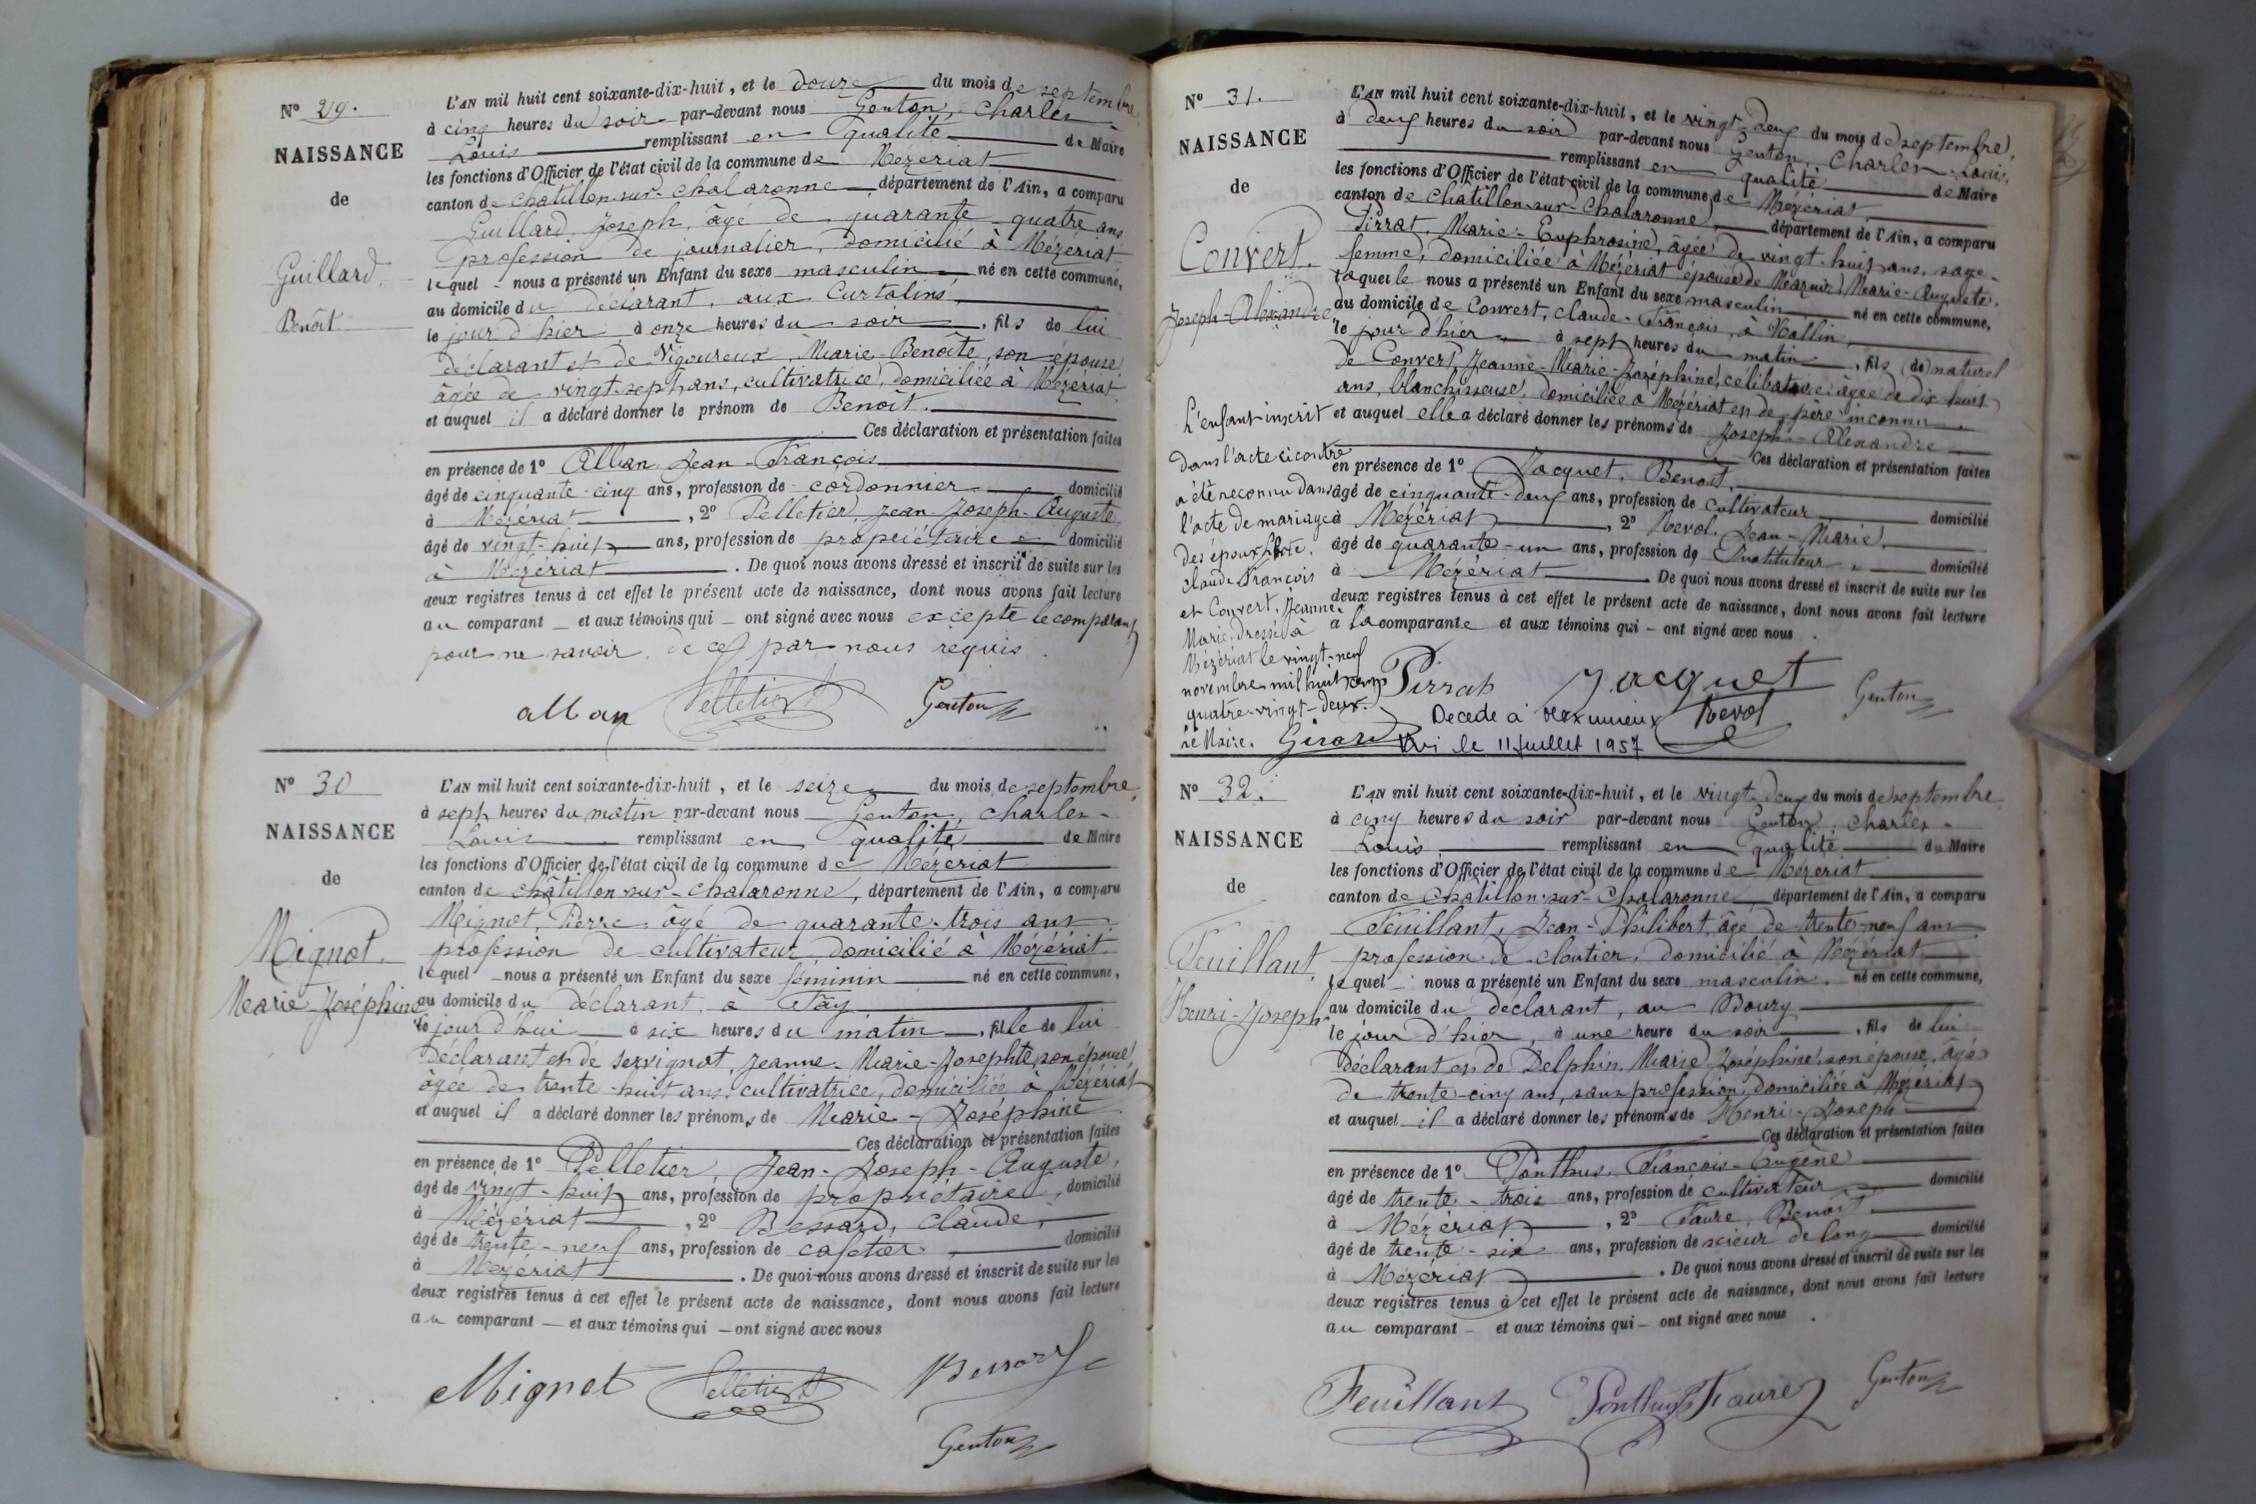 N° 29.
NAISSANCE
de
Guillard,
Benoît
L'AN mil huit cent soixante-dix-huit, et le douze du mois de septembre,
à cinq heures du soir par-devant nous Genton, Charles-
Louis remplissant en qualité de Maire
les fonctions d'Officier de l'état civil de la commune de Mézériat
canton de Châtillon-sur-Chalaronne, département de l'Ain, a comparu
Guillard, Joseph, âgé de quarante-quatre ans
profession de journalier, domicilié à Mézériat
lequel nous a présenté un Enfant du sexe masculin né en cette commune,
au domicile du déclarant, aux Curtalins,
le jour d'hier, à onze heures du soir, fils de lui
déclarant et de Vigoureux, Marie-Benoîte, son épouse,
âgée de vingt-sept ans, cultivatrice, domiciliée à Mézériat,
et auquel il a déclaré donner le prénom de Benoît.
Ces déclaration et présentation faites
en présence de 1° Alban, Jean-François
âgé de cinquante-cinq ans, profession de cordonnier domicilié
à Mézériat, 2° Pelletier, Jean-Joseph-Auguste,
âgé de vingt-huit ans, profession de propriétaire domicilié
à Mézériat. De quoi nous avons dressé et inscrit de suite sur les
deux registres tenus à cet effet le présent acte de naissance, dont nous avons fait lecture
au comparant et aux témoins qui ont signé avec nous excepté le comparant
pour ne savoir, de ce par nous requis.
alban Pelletier Genton
N° 30
NAISSANCE
de
Mignot,
Marie-Joséphine
L'AN mil huit cent soixante-dix-huit, et le seize du mois de septembre,
à sept heures du matin par-devant nous Genton, Charles-
Louis remplissant en qualité de Maire
les fonctions d'Officier de l'état civil de la commune de Mézériat
canton de Châtillon-sur-Chalaronne, département de l'Ain, a comparu
Mignot, Pierre, âgé de quarante-trois ans
profession de cultivateur domicilié à Mézériat
lequel nous a présenté un Enfant du sexe féminin né en cette commune,
au domicile du déclarant, à Fay
le jour d'hui à six heures du matin, fille de lui
déclarant et de Servignat, Jeanne-Marie-Josephte, son épouse,
âgée de trente-huit ans, cultivatrice, domiciliée à Mézériat
et auquel il a déclaré donner les prénoms de Marie-Joséphine
Ces déclaration et présentation faites
en présence de 1° Pelletier, Jean-Joseph-Auguste,
âgé de vingt-huit ans, profession de propriétaire, domicilié
à Mézériat, 2° Bessard, Claude,
âgé de trente-neuf ans, profession de cafetier domicilié
à Mézériat. De quoi nous avons dressé et inscrit de suite sur les
deux registres tenus à cet effet le présent acte de naissance, dont nous avons fait lecture
au comparant et aux témoins qui ont signé avec nous
Mignot Pelletier Bessard
Genton
N° 31.
NAISSANCE
de
Convert,
Joseph-Alexandre
L'enfant inscrit
dans l'acte ci contre
a été reconnu dans
l'acte de mariage
des époux
Claude François
et Convert, Jeanne
Marie, dressé à
Mézériat le vingt-neuf
novembre mil huit cent
quatre-vingt-deux.
Le Maire. Girard
L'AN mil huit cent soixante-dix-huit, et le vingt-deux du mois de septembre,
à deux heures du soir par-devant nous Genton, Charles-Louis,
remplissant en qualité de Maire
les fonctions d'Officier de l'état civil de la commune de Mézériat
canton de Châtillon-sur-Chalaronne, département de l'Ain, a comparu
Pirrat, Marie-Euphrosine, âgée de vingt-huit ans, sage-
femme, domiciliée à Mézériat épouse de Marie-Auguste,
laquelle nous a présenté un Enfant du sexe masculin né en cette commune,
au domicile de Convert, Claude-François, à
le jour d'hier à sept heures du matin, fils (de) naturel
de Convert, Jeanne-Marie-Joséphine, célibataire, âgée de dix-huit
ans, blanchisseuse, domiciliée à Mézériat et de père inconnu
et auquel elle a déclaré donner les prénoms de Joseph-Alexandre
Ces déclaration et présentation faites
en présence de 1° Jacquet, Benoît,
âgé de cinquante-deux ans, profession de cultivateur domicilié
à Mézériat, 2° Revol, Jean-Marie,
âgé de quarante-un ans, profession de Instituteur domicilié
à Mézériat. De quoi nous avons dressé et inscrit de suite sur les
deux registres tenus à cet effet le présent acte de naissance, dont nous avons fait lecture
à la comparante et aux témoins qui ont signé avec nous.
Pirrat Jacquet Genton
Décédé à Meximieux Revol
le 11 Juillet 1957
N° 32.
NAISSANCE
de
Feuillant,
Henri-Joseph
L'AN mil huit cent soixante-dix-huit, et le vingt-deux du mois de septembre
à cinq heures du soir par-devant nous Genton, Charles-
Louis, remplissant en qualité de Maire
les fonctions d'Officier de l'état civil de la commune de Mézériat
canton de Châtillon-sur-Chalaronne département de l'Ain, a comparu
Feuillant, Jean-Philibert, âgé de trente-neuf ans
profession de cloutier, domicilié à Mézériat
lequel nous a présenté un Enfant du sexe masculin né en cette commune,
au domicile du déclarant, au Bourg
le jour d'hier, à une heure du soir, fils de lui
déclarant et de Delphin, Marie Joséphine, son épouse, âgée
de trente-cinq ans, sans profession, domiciliée à Mézériat,
et auquel il a déclaré donner les prénoms de Henri-Joseph
Ces déclaration et présentation faites
en présence de 1° Ponthus, François-Eugène
âgé de trente-trois ans, profession de cultivateur domicilié
à Mézériat, 2° Faure, Benoît,
âgé de trente-six ans, profession de scieur de long domicilié
à Mézériat. De quoi nous avons dressé et inscrit de suite sur les
deux registres tenus à cet effet le présent acte de naissance, dont nous avons fait lecture
au comparant et aux témoins qui ont signé avec nous.
Feuillant Ponthus Faure Genton